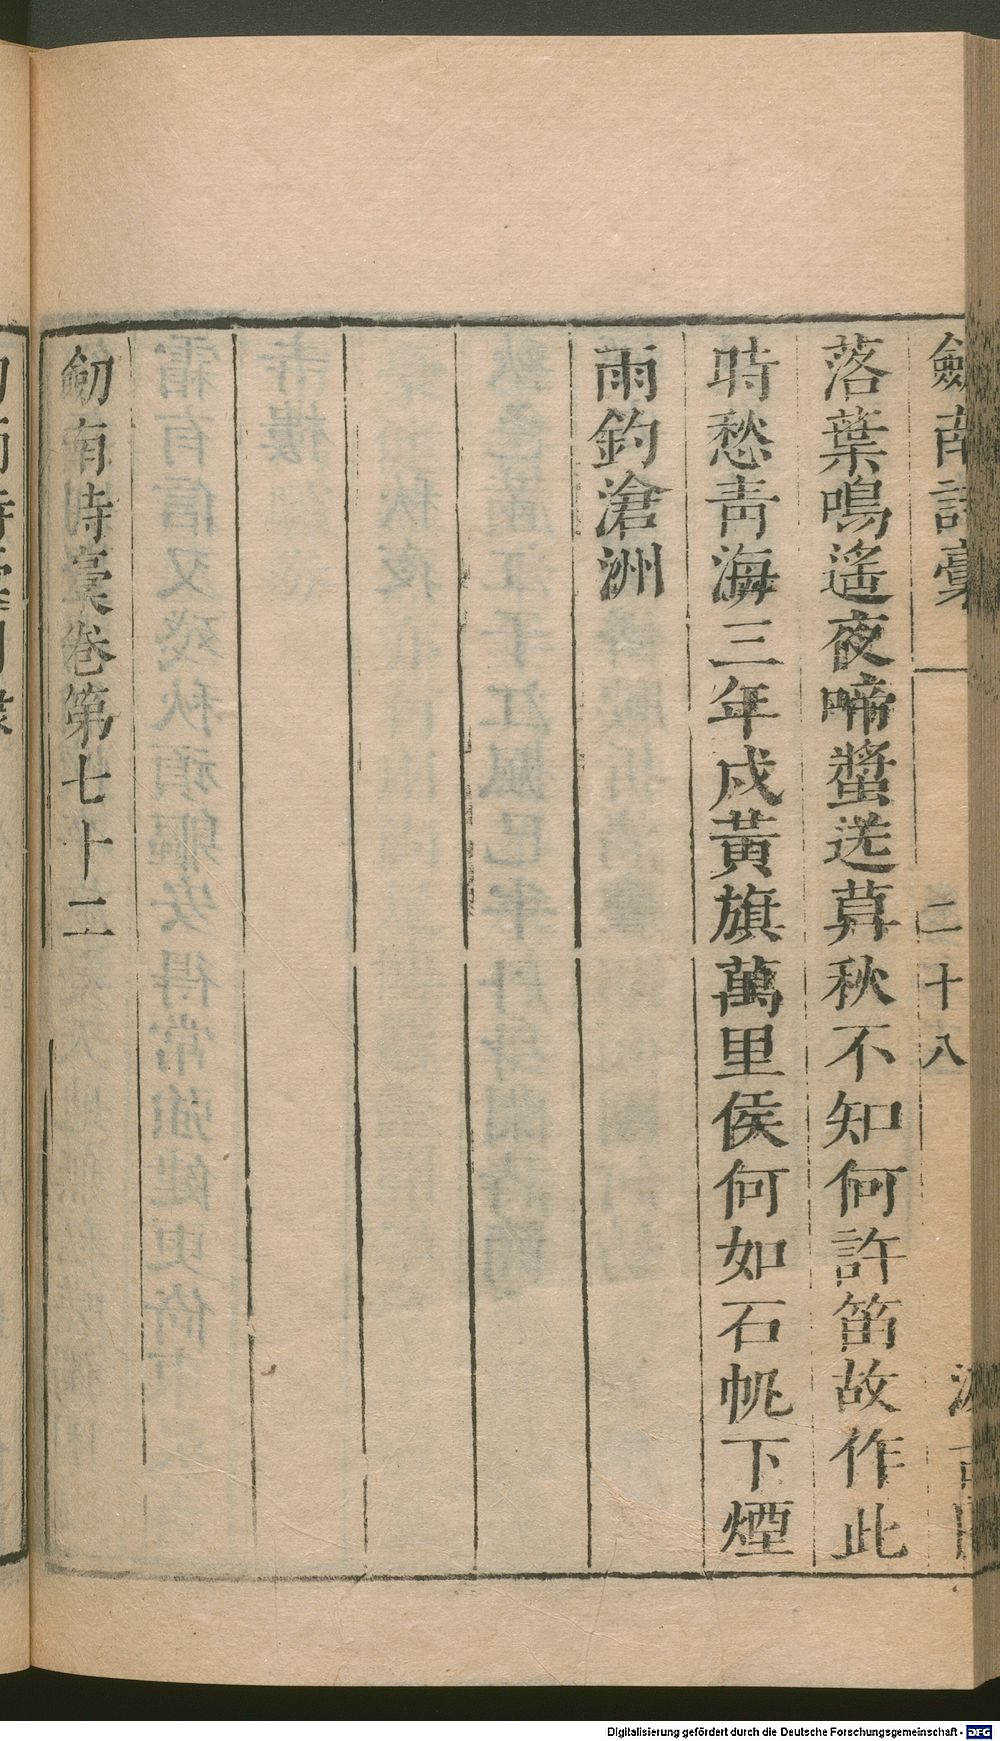 劒南詩稾 二十八 汲古閣
落葉鳴遙夜啼螿送莫秋不知何許笛故作此
時愁青海三年戍黃旗萬里侯何如石帆下煙
雨釣滄洲
劒南詩稾卷第七十二
Digitalisierung gefördert durch die Deutsche Forschungsgemeinschaft - DFG